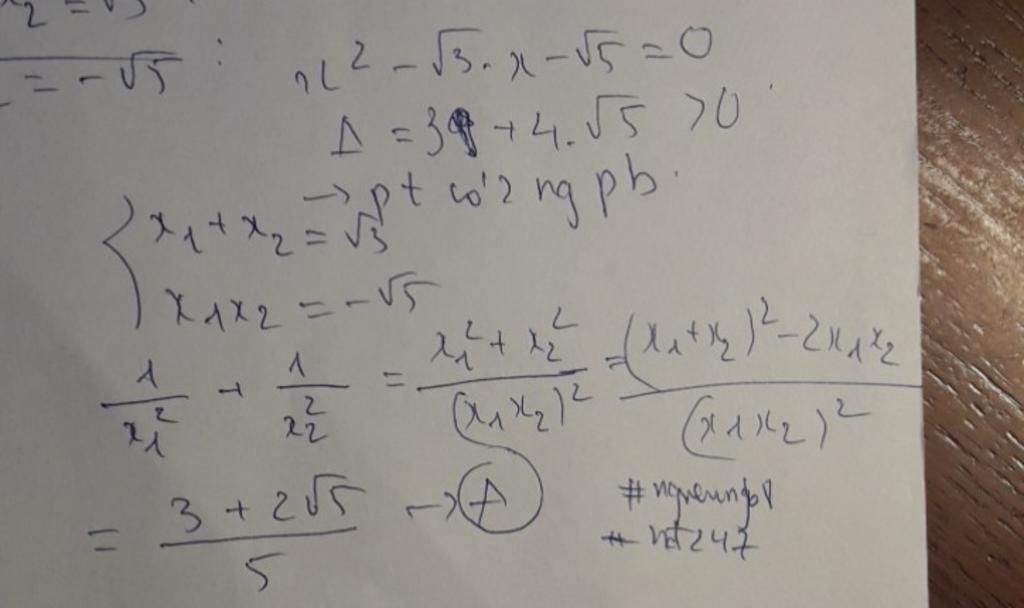 x₂ = √3
= -√5 : x² - √3. x - √5 = 0
Δ = 3 + 4. √5 > 0
→ pt có 2 ng pb.
{ x₁ + x₂ = √3
x₁x₂ = -√5
1/x₁² + 1/x₂² = (x₁² + x₂²)/(x₁x₂)² = ((x₁+x₂)² - 2x₁x₂)/(x₁x₂)²
= (3 + 2√5)/5 → A